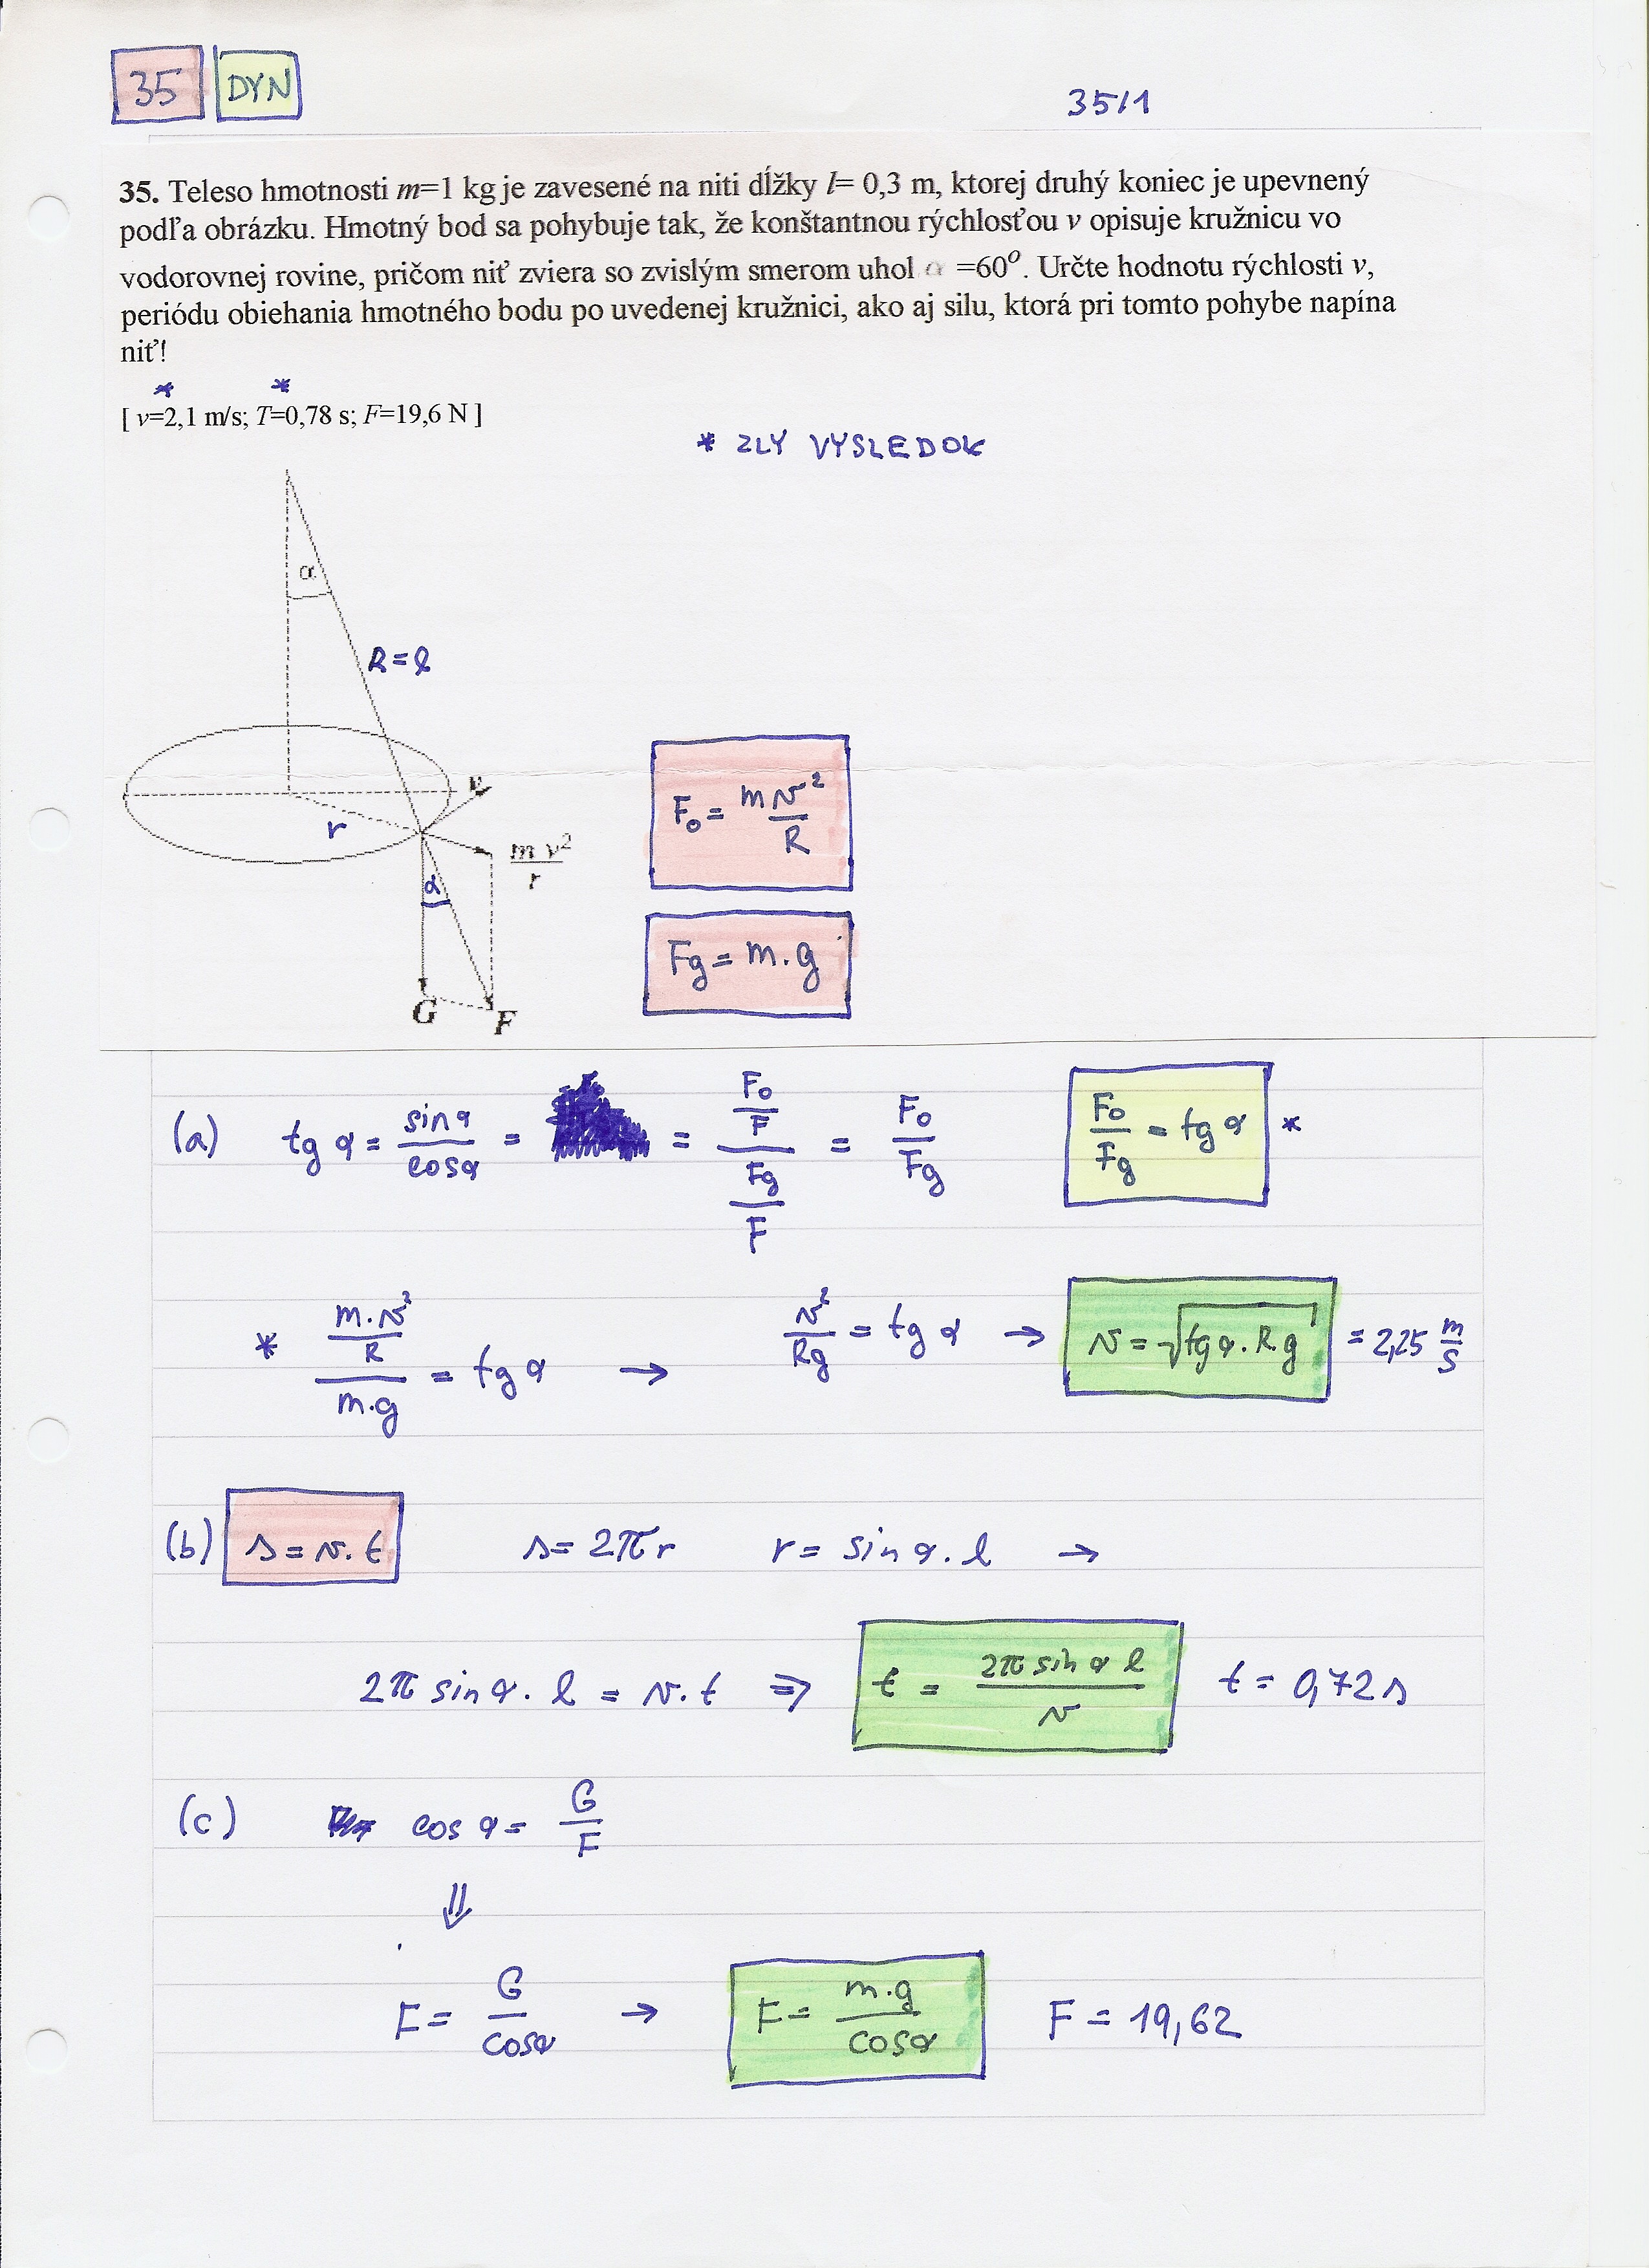 35 DYN 35/1
35. Teleso hmotnosti m=1 kg je zavesené na niti dĺžky l= 0,3 m, ktorej druhý koniec je upevnený
podľa obrázku. Hmotný bod sa pohybuje tak, že konštantnou rýchlosťou v opisuje kružnicu vo
vodorovnej rovine, pričom niť zviera so zvislým smerom uhol α =60⁰. Určte hodnotu rýchlosti v,
periódu obiehania hmotného bodu po uvedenej kružnici, ako aj silu, ktorá pri tomto pohybe napína
niť!
* *
[ v=2,1 m/s; T=0,78 s; F=19,6 N ]
* ZLÝ VÝSLEDOK
α
R = l
v
r
m v² / r
α
G
F
F₀ = m v² / R
Fg = m.g
(a) tg α = sin α / cos α = = (F₀ / F) / (Fg / F) = F₀ / Fg F₀ / Fg = tg α *
* (m.v² / R) / m.g = tg α → v² / Rg = tg α → v = √(tg α . R.g) = 2,25 m/s
(b) s = v.t s = 2πr r = sin α . l →
2π sin α . l = v.t ⇒ t = 2π sin α l / v t = 0,72 s
(c) cos α = G / F
⇓
F = G / cos α → F = m.g / cos α F = 19,62